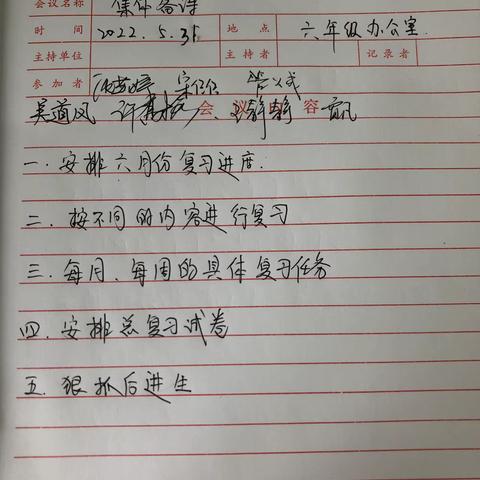 会议名称 集体备课
时间 2022.5.31 地点 六年级办公室
主持单位 主持者 记录者
参加者
吴道风 许 会议内容
一.安排六月份复习进度.
二.按不同的内容进行复习
三.每月、每周的具体复习任务
四.安排总复习试卷
五.狠抓后进生